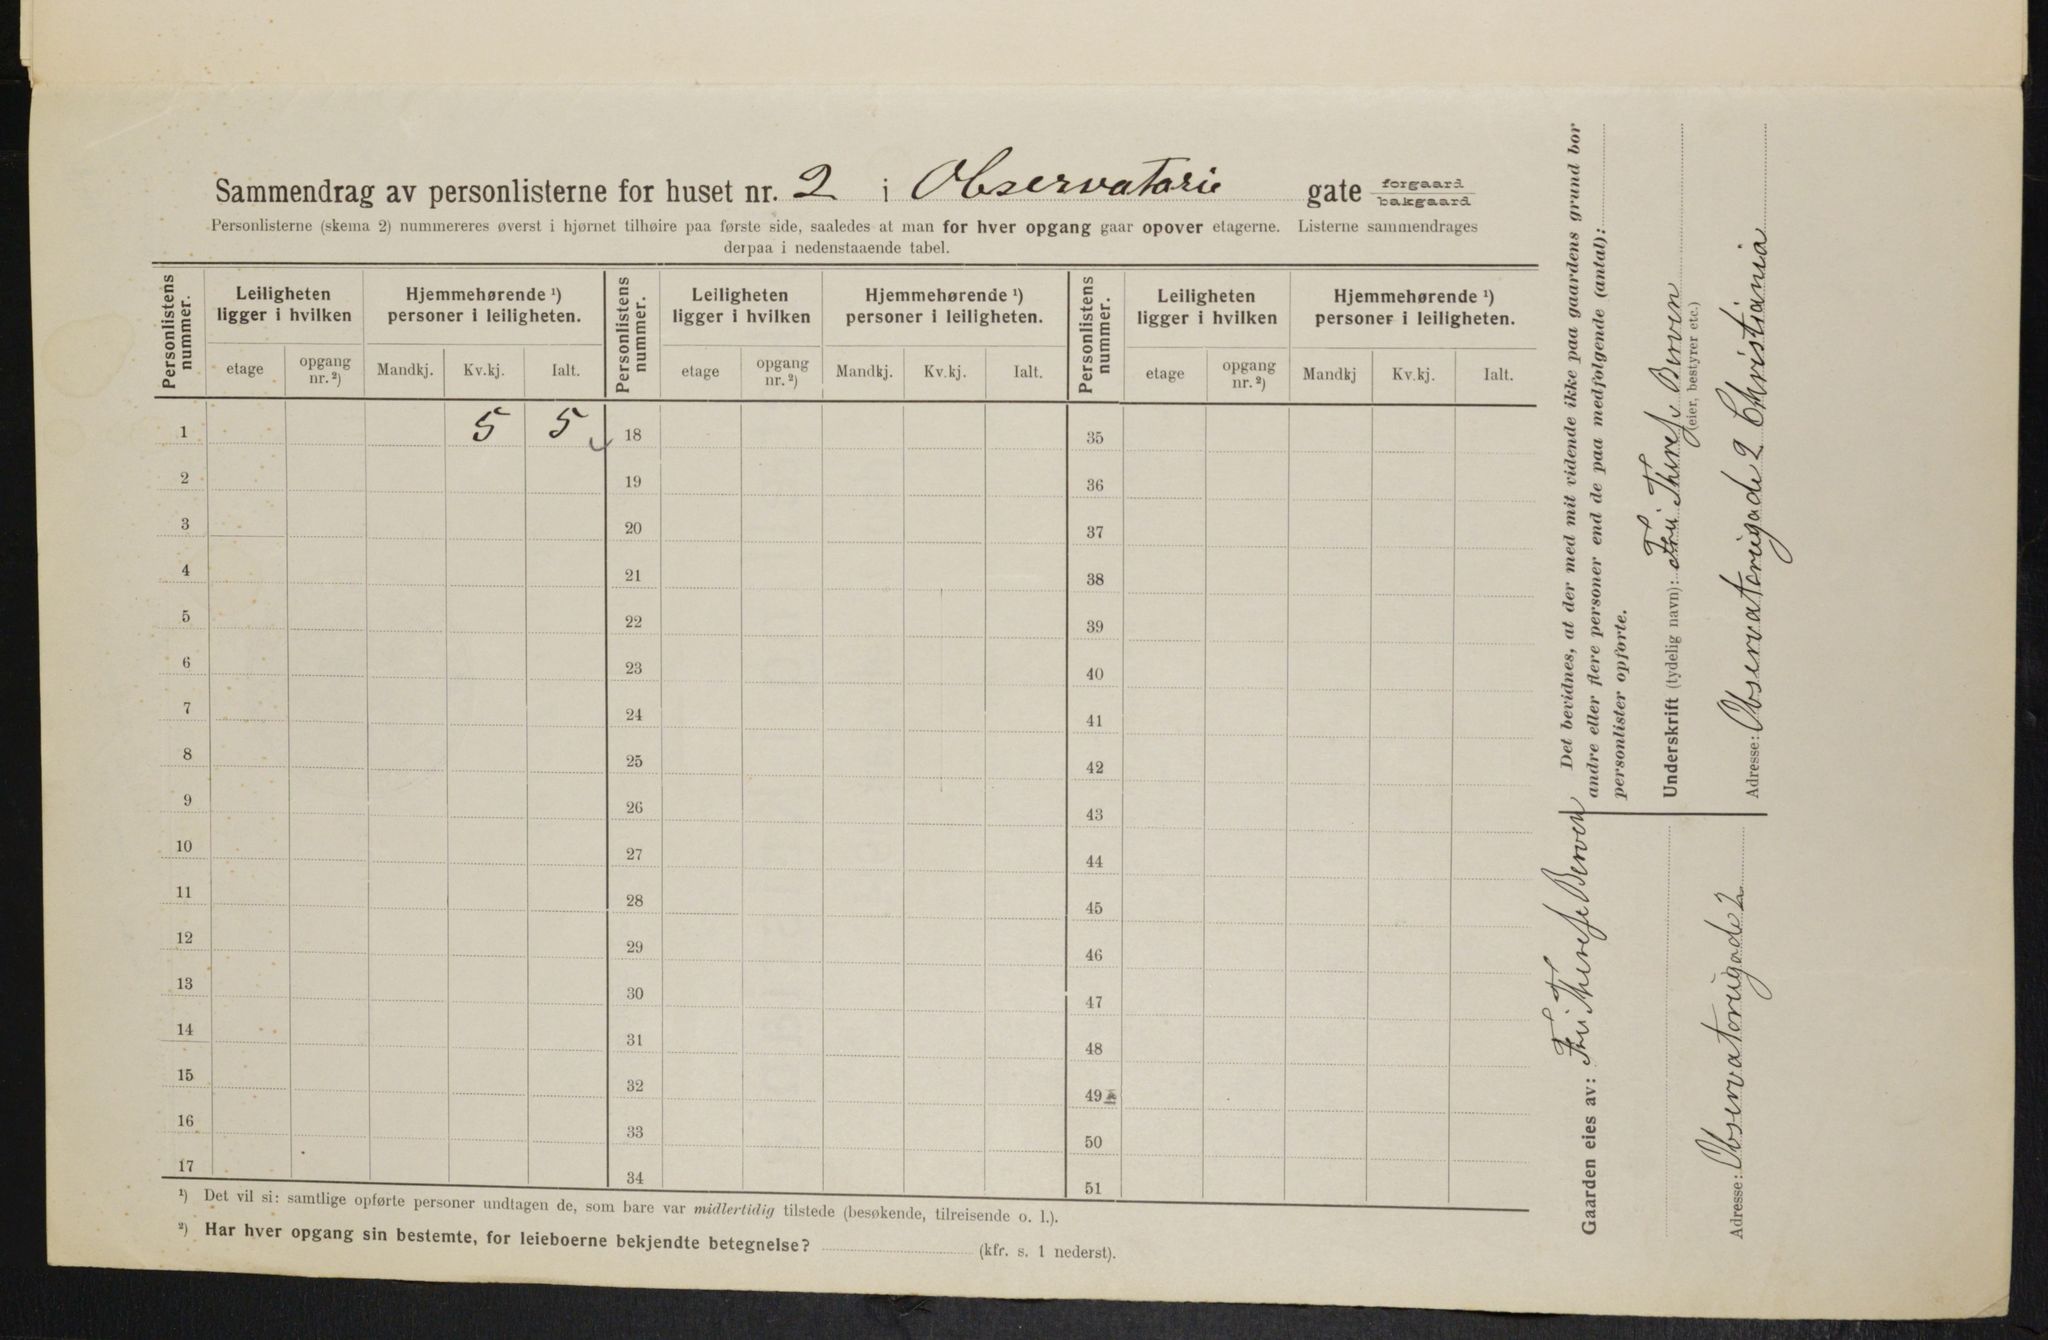 Sammendrag av personlisterne for huset nr. 2 i Observatorie gate forgaard bakgaard
Personlisterne (skema 2) nummereres øverst i hjørnet tilhøire paa første side, saaledes at man for hver opgang gaar opover etagerne. Listerne sammendrages
derpaa i nedenstaaende tabel.
Personlistens nummer. Leiligheten ligger i hvilken Hjemmehørende ¹) personer i leiligheten. Personlistens nummer. Leiligheten ligger i hvilken Hjemmehørende ¹) personer i leiligheten. Personlistens nummer. Leiligheten ligger i hvilken Hjemmehørende ¹) personer i leiligheten.
etage opgang nr. ²) Mandkj. Kv.kj. Ialt. etage opgang nr. ²) Mandkj. Kv.kj. Ialt. etage opgang nr. ²) Mandkj Kv.kj. Ialt.
1 5 5 18 35
2 19 36
3 20 37
4 21 38
5 22 39
6 23 40
7 24 41
8 25 42
9 26 43
10 27 44
11 28 45
12 29 46
13 30 47
14 31 48
15 32 49
16 33 50
17 34 51
¹) Det vil si: samtlige opførte personer undtagen de, som bare var midlertidig tilstede (besøkende, tilreisende o. l.).
²) Har hver opgang sin bestemte, for leieboerne bekjendte betegnelse? (kfr. s. 1 nederst).
Gaarden eies av: Fru Therese Berven
Adresse: Observatoriigade 2
Det bevidnes, at der med mit vidende ikke paa gaardens grund bor
andre eller flere personer end de paa medfølgende (antal):
personlister opførte.
Underskrift (tydelig navn): Fru Therese Berven
(eier, bestyrer etc.)
Adresse: Observatoriigade 2 Christiania